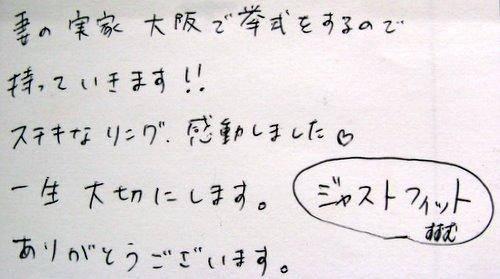 妻の実家 大阪で挙式をするので
持っていきます!!
ステキなリング、感動しました♡
一生 大切にします。
ジャストフィット
ありがとうございます。